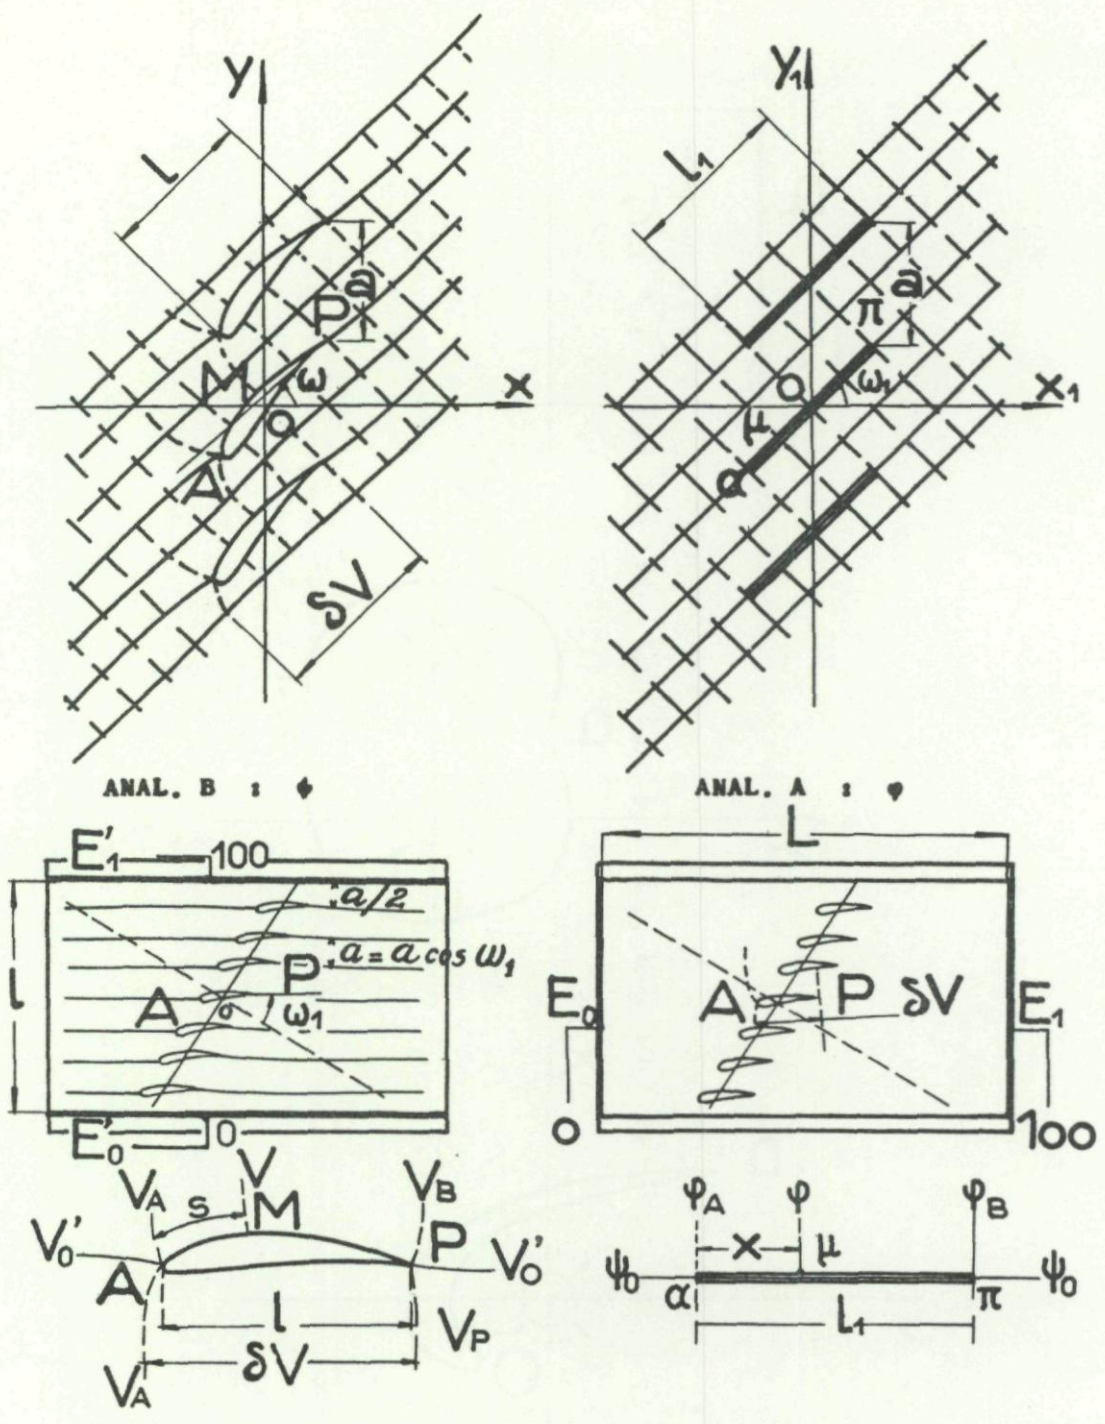 y
l
a
P
M
ω
x
O
A
δV
y₁
l₁
a
π
O
ω₁
x₁
μ
α
ANAL. B : ψ
ANAL. A : φ
E'₁ 100
a/2
a = a cos ω₁
P
A
o
ω₁
l
E'₀ 0
L
E₀
A P δV
E₁
0
100
V_A
s
V
M
V_B
V'₀
A
P
V'₀
l
V_P
δV
V_A
φ_A
φ
φ_B
x
μ
ψ₀
α
π
ψ₀
l₁